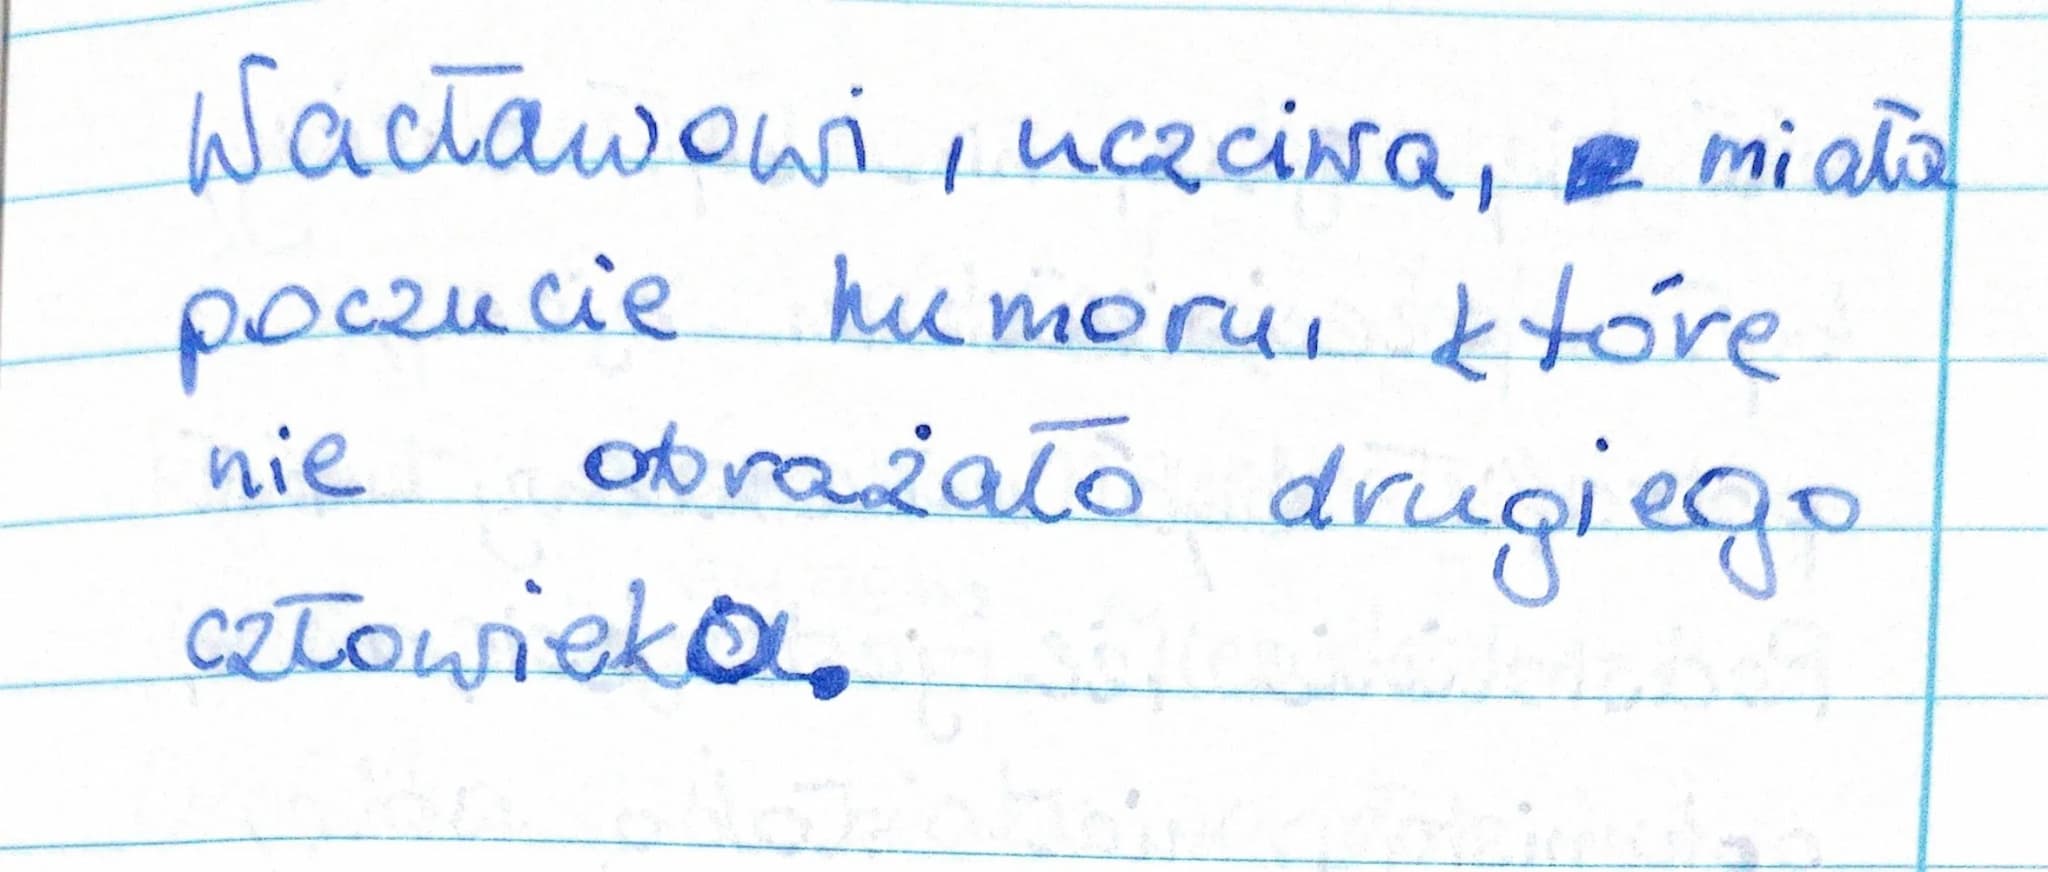 Wacławowi, uczciwa, miała
poczucie humoru, które
nie obrażało drugiego
człowieka.